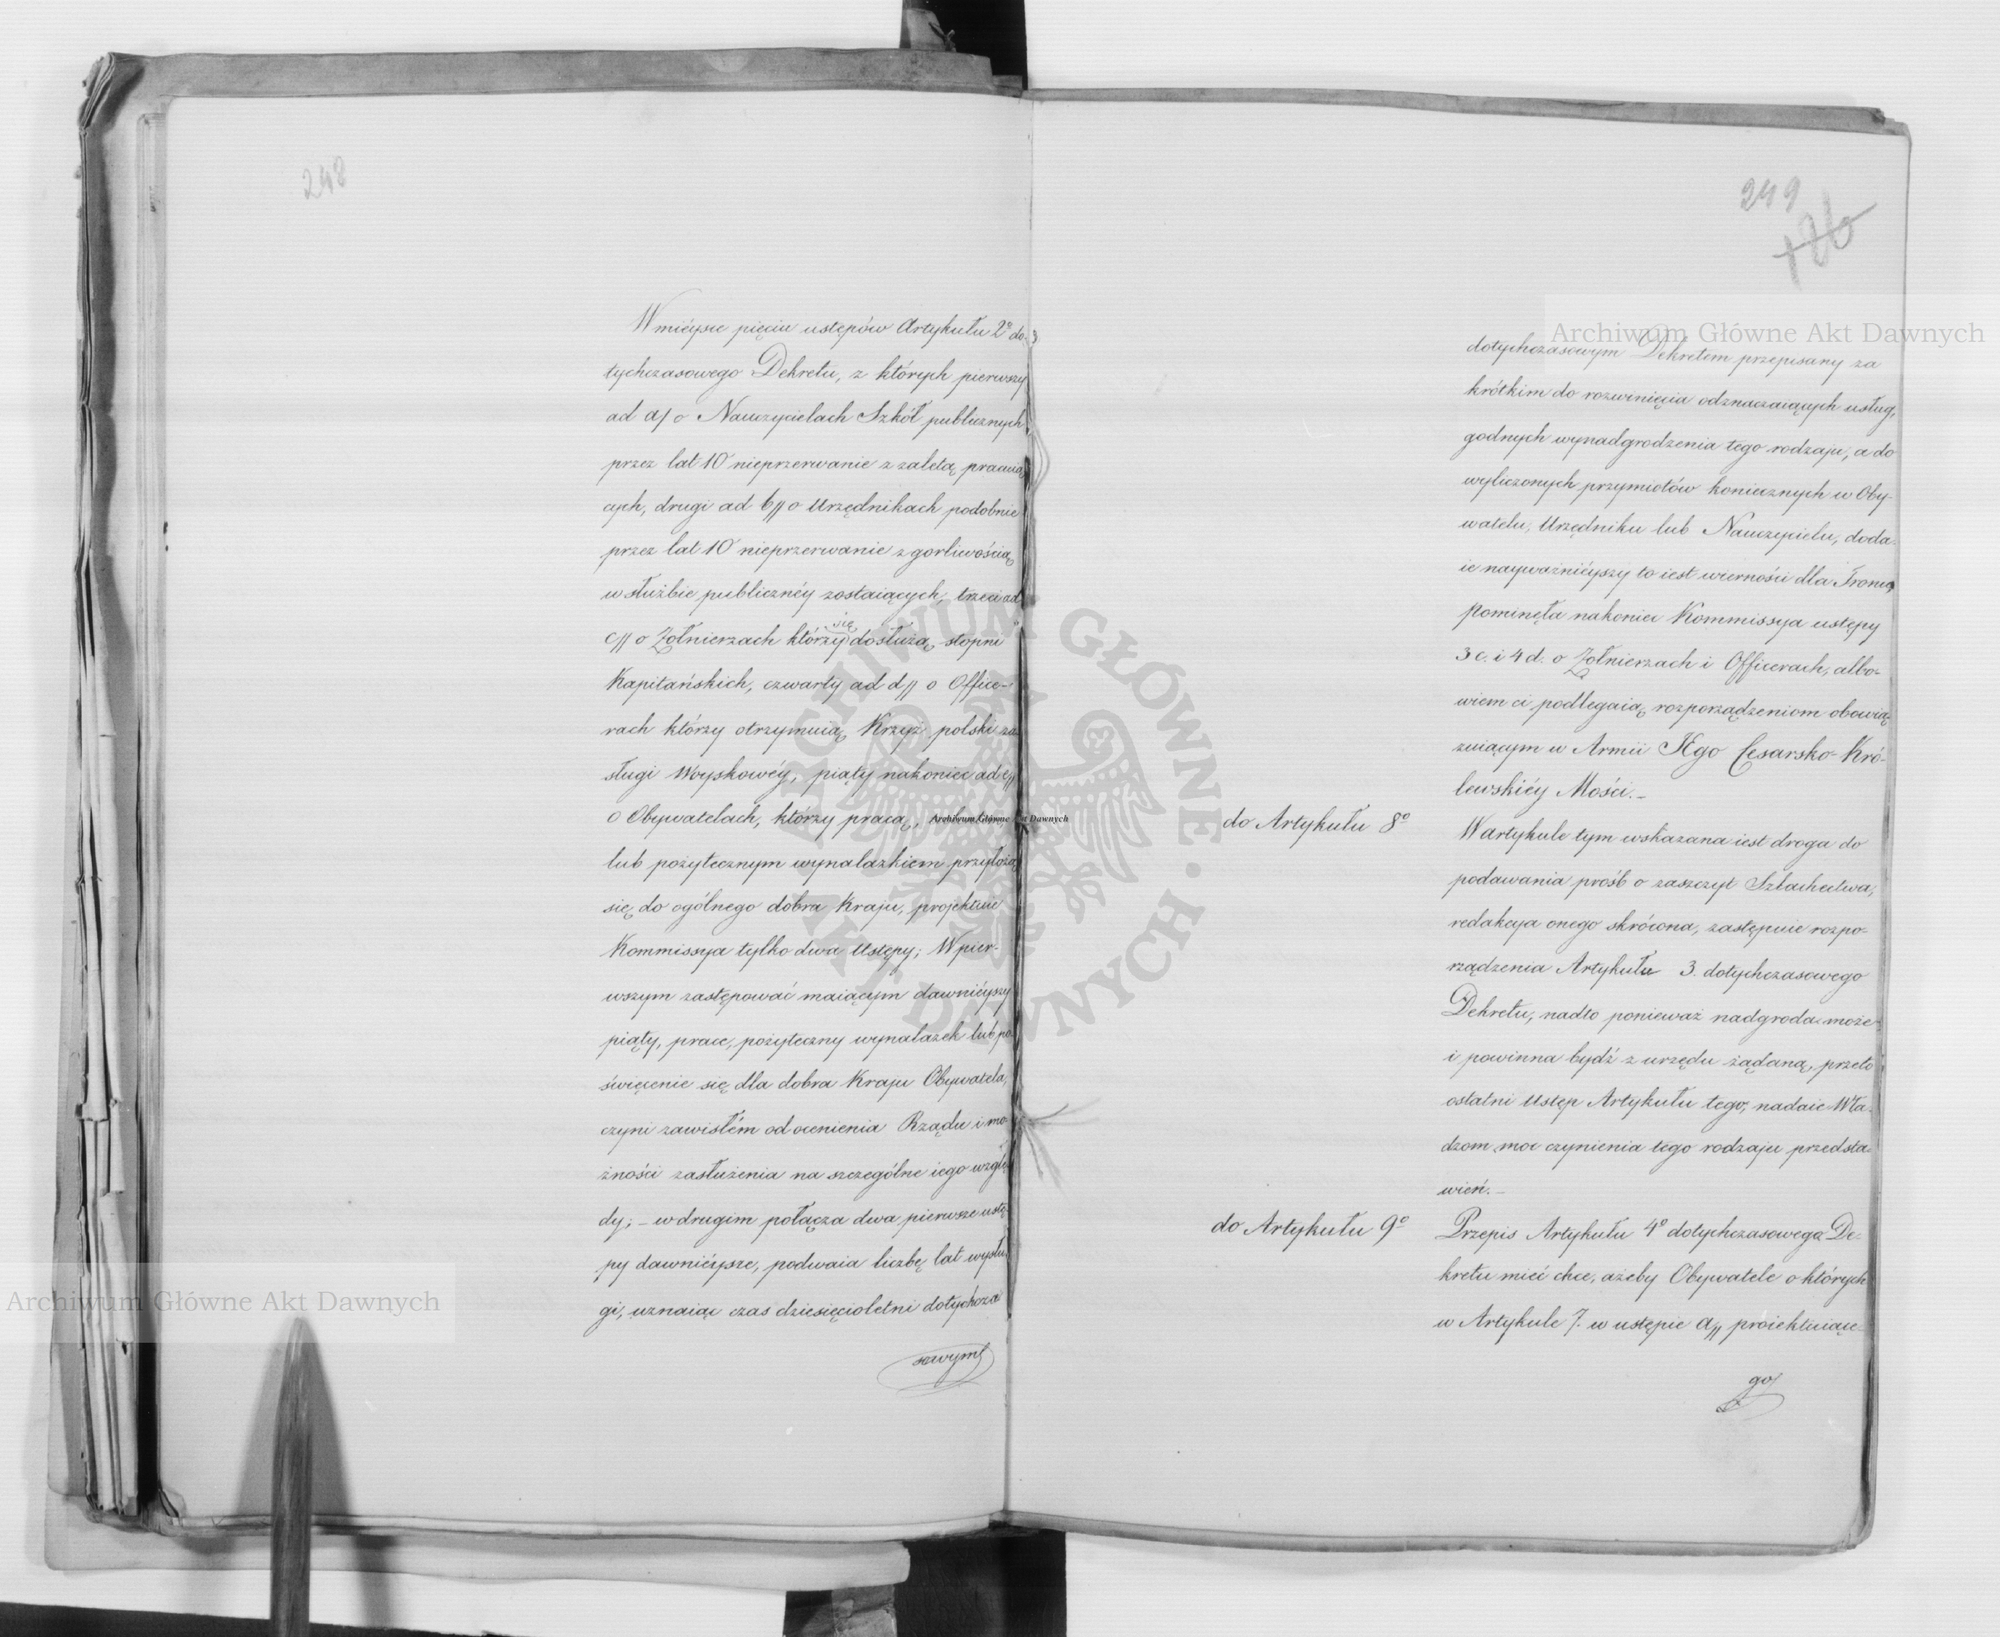 248
W mieysce pięciu ustępów Artykułu 2º do-
tychczasowego Dekretu, z których pierwszy
ad a// o Nauczycielach Szkół publicznych
przez lat 10 nieprzerwanie z zaletą pracuią
cych, drugi ad b// o Urzędnikach podobnie
przez lat 10 nieprzerwanie z gorliwością
w służbie publicznéy zostaiących, trzeci ad
c// o Żołnierzach którzy się dosłużą stopni
Kapitańskich, czwarty ad d// o Office-
rach którzy otrzymuią Krzyż polski za
sługi Woyskowéy, piąty nakoniec ad e//
o Obywatelach, którzy pracą,
lub pożytecznym wynalazkiem przyłożą
się do ogólnego dobra Kraju, projektuie
Kommissya tylko dwa Ustępy; W pier-
wszym zastępować maiącym dawniéyszy
piąty, prace, pożyteczny wynalazek lub po-
święcenie się dla dobra Kraju Obywatela,
czyni zawisłém od ocenienia Rządu i mo-
żności zasłużenia na szczególne iego wzglę
dy; – w drugim połącza dwa pierwsze ustę-
py dawniéysze, podwaia liczbę lat wysłu
gi, uznaiąc czas dziesięcioletni dotychcza
sowym
249
126
dotychczasowym Dekretem przepisany za
krótkim do rozwinięcia odznaczaiących usług,
godnych wynadgrodzenia tego rodzaju, a do
wyliczonych przymiotów koniecznych w Oby-
watelu, Urzędniku lub Nauczycielu, doda-
ie nayważniéyszy to iest wierności dla Tronu,
pominęła nakoniec Kommissya ustępy
3 c. i 4 d. o Żołnierzach i Officerach, albo-
wiem ci podlegaią rozporządzeniom obowią
zuiącym w Armii JEgo Cesarsko-Kró-
lewskiéy Mości. –
do Artykułu 8º
W artykule tym wskazana iest droga do
podawania próśb o zaszczyt Szlachectwa,
redakcya onego skrócona, zastępuie rozpo-
rządzenia Artykułu 3. dotychczasowego
Dekretu, nadto ponieważ nadgroda może
i powinna bydź z urzędu żądaną, przeto
ostatni Ustęp Artykułu tego, nadaie Wła-
dzom moc czynienia tego rodzaju przedsta-
wień. –
do Artykułu 9º
Przepis Artykułu 4º dotychczasowego De-
kretu mieć chce, ażeby Obywatele o których
w Artykule 7. w ustępie a// proiektuiące-
go
Archiwum Główne Akt Dawnych
Archiwum Główne Akt Dawnych
Archiwum Główne Akt Dawnych
ARCHIWUM GŁÓWNE AKT DAWNYCH